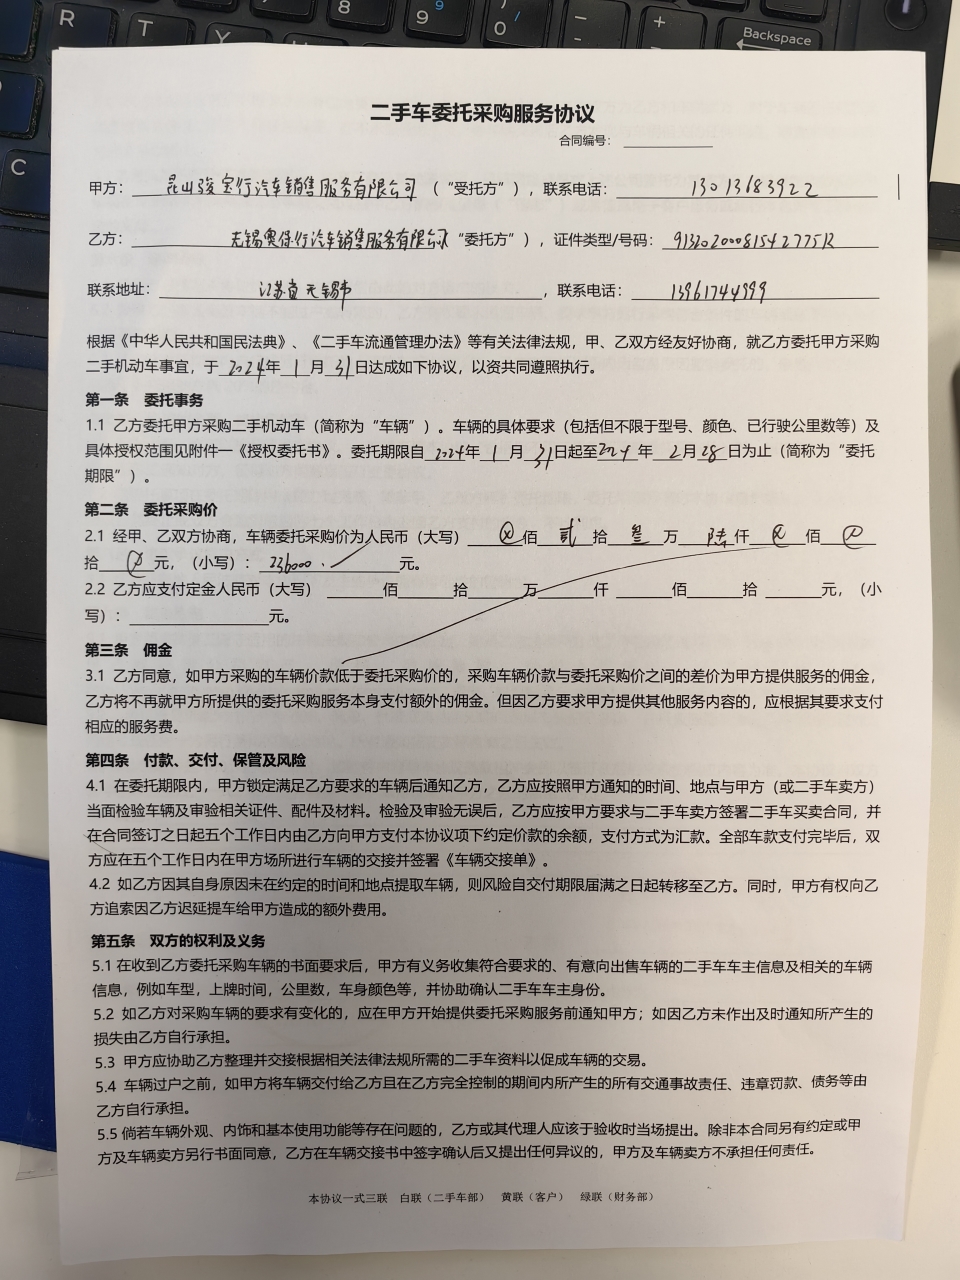 二手车委托采购服务协议
合同编号：
甲方： 昆山骏宝行汽车销售服务有限公司 （“受托方”），联系电话： 13013683922
乙方： 无锡奥保行汽车销售服务有限公司“委托方”），证件类型/号码： 91320200081542775R
联系地址： 江苏省无锡市 ，联系电话： 13961744999
根据《中华人民共和国民法典》、《二手车流通管理办法》等有关法律法规，甲、乙双方经友好协商，就乙方委托甲方采购
二手机动车事宜，于 2024年 1 月 31日达成如下协议，以资共同遵照执行。
第一条 委托事务
1.1 乙方委托甲方采购二手机动车（简称为“车辆”）。车辆的具体要求（包括但不限于型号、颜色、已行驶公里数等）及
具体授权范围见附件一《授权委托书》。委托期限自 2024年 1 月 31日起至2024 年 2月28日为止（简称为“委托
期限”）。
第二条 委托采购价
2.1 经甲、乙双方协商，车辆委托采购价为人民币（大写） ⊗佰 贰 拾 叁 万 陆仟 ⊗ 佰
拾 元，（小写）： 236000. 元。
2.2 乙方应支付定金人民币（大写） 佰 拾 万 仟 佰 拾 元，（小
写）： 元。
第三条 佣金
3.1 乙方同意，如甲方采购的车辆价款低于委托采购价的，采购车辆价款与委托采购价之间的差价为甲方提供服务的佣金，
乙方将不再就甲方所提供的委托采购服务本身支付额外的佣金。但因乙方要求甲方提供其他服务内容的，应根据其要求支付
相应的服务费。
第四条 付款、交付、保管及风险
4.1 在委托期限内，甲方锁定满足乙方要求的车辆后通知乙方，乙方应按照甲方通知的时间、地点与甲方（或二手车卖方）
当面检验车辆及审验相关证件、配件及材料。检验及审验无误后，乙方应按甲方要求与二手车卖方签署二手车买卖合同，并
在合同签订之日起五个工作日内由乙方向甲方支付本协议项下约定价款的余额，支付方式为汇款。全部车款支付完毕后，双
方应在五个工作日内在甲方场所进行车辆的交接并签署《车辆交接单》。
4.2 如乙方因其自身原因未在约定的时间和地点提取车辆，则风险自交付期限届满之日起转移至乙方。同时，甲方有权向乙
方追索因乙方迟延提车给甲方造成的额外费用。
第五条 双方的权利及义务
5.1 在收到乙方委托采购车辆的书面要求后，甲方有义务收集符合要求的、有意向出售车辆的二手车车主信息及相关的车辆
信息，例如车型，上牌时间，公里数，车身颜色等，并协助确认二手车车主身份。
5.2 如乙方对采购车辆的要求有变化的，应在甲方开始提供委托采购服务前通知甲方；如因乙方未作出及时通知所产生的
损失由乙方自行承担。
5.3 甲方应协助乙方整理并交接根据相关法律法规所需的二手车资料以促成车辆的交易。
5.4 车辆过户之前，如甲方将车辆交付给乙方且在乙方完全控制的期间内所产生的所有交通事故责任、违章罚款、债务等由
乙方自行承担。
5.5 倘若车辆外观、内饰和基本使用功能等存在问题的，乙方或其代理人应该于验收时当场提出。除非本合同另有约定或甲
方及车辆卖方另行书面同意，乙方在车辆交接书中签字确认后又提出任何异议的，甲方及车辆卖方不承担任何责任。
本协议一式三联 白联（二手车部） 黄联（客户） 绿联（财务部）
R
T
8
9
0
-
+
=
Backspace
C